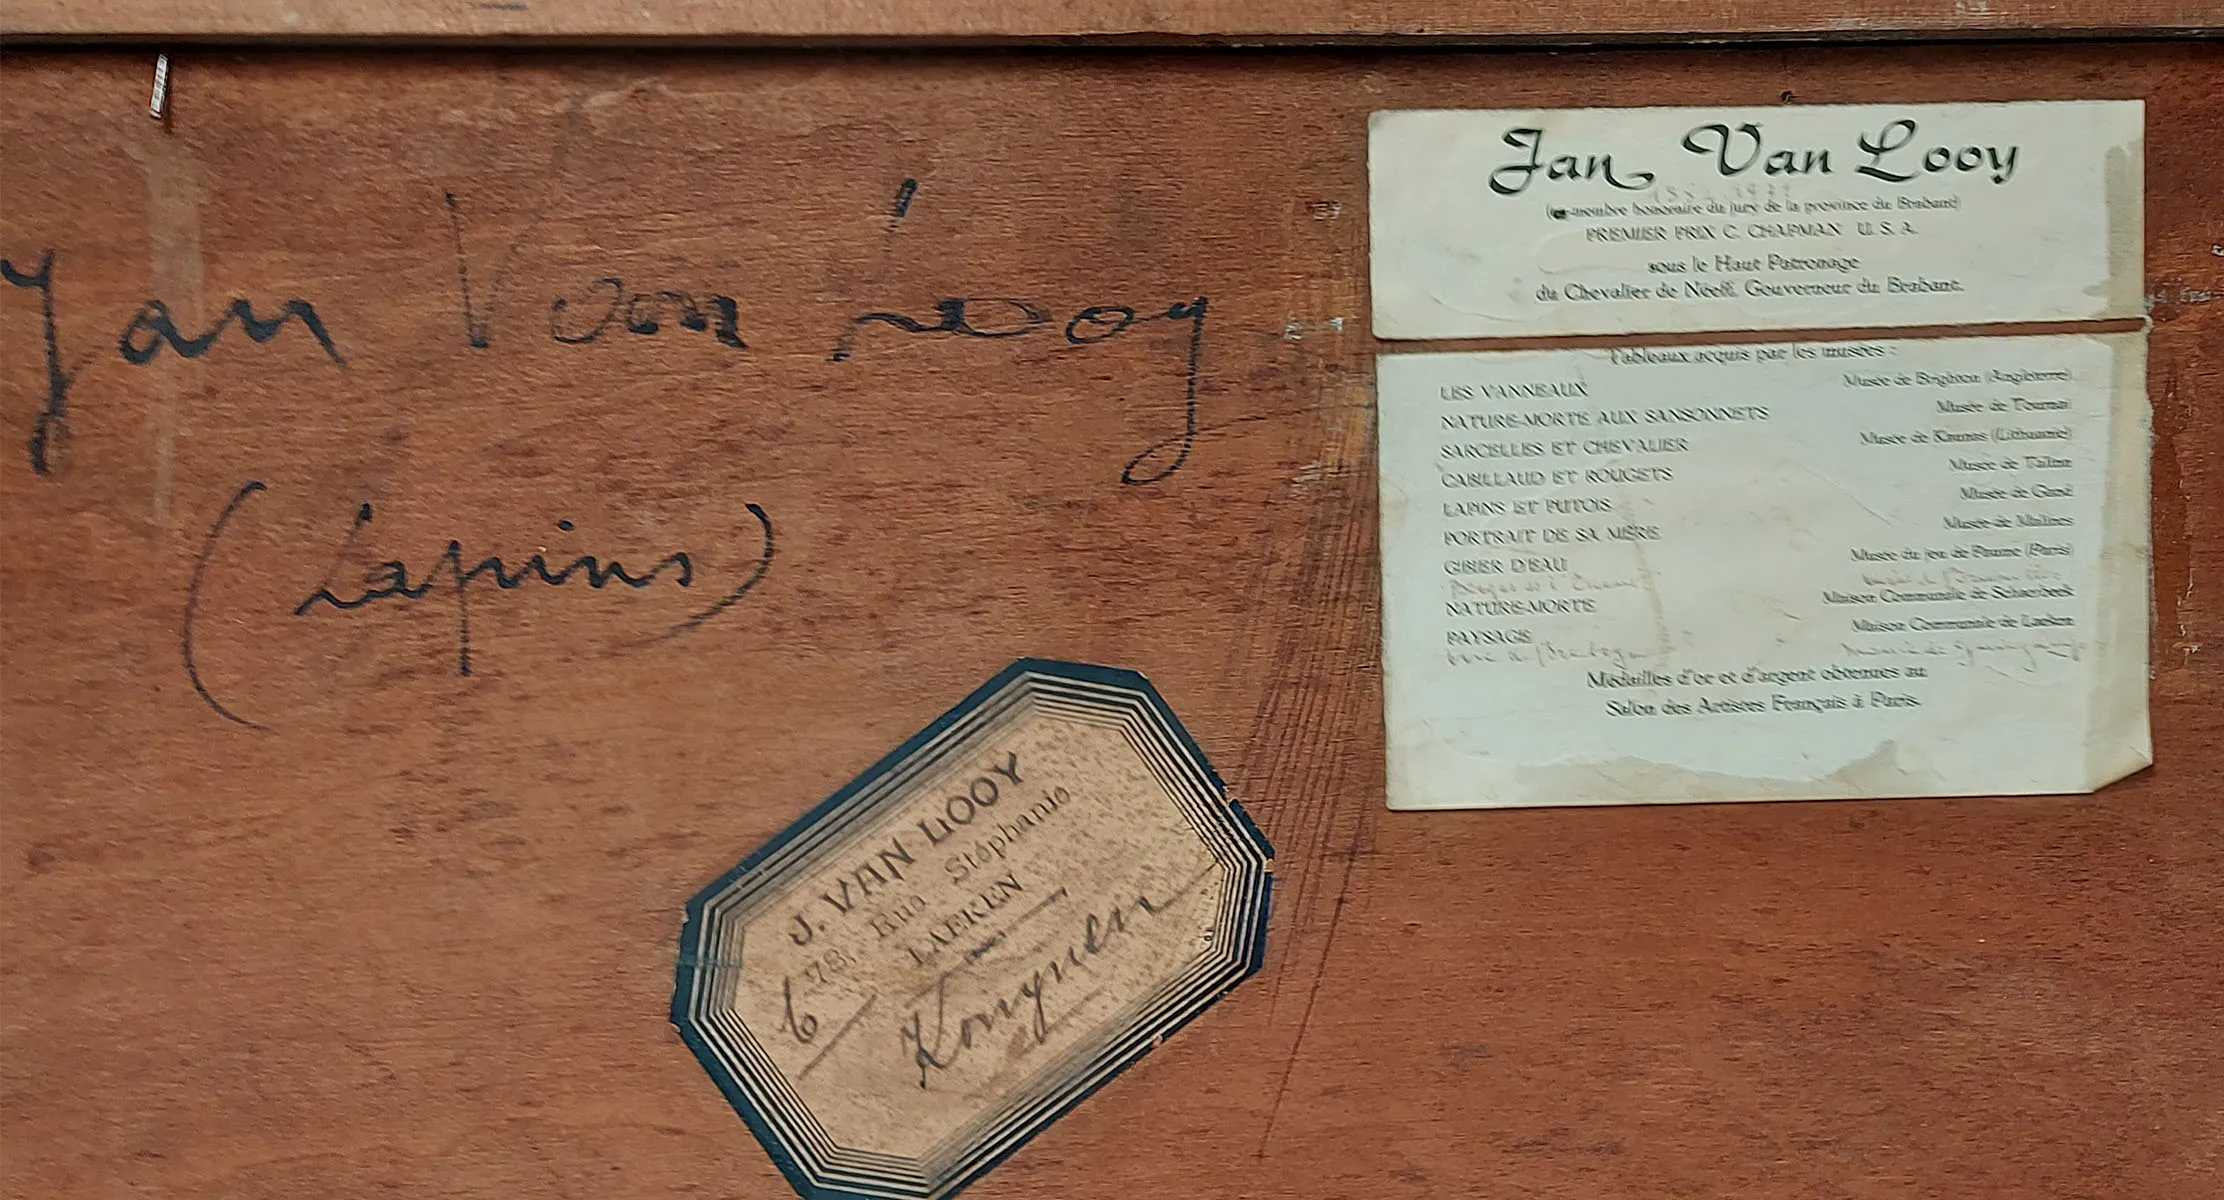 Jan Van Looy
(Lapins)
Jan Van Looy
-membre honoraire du jury de la province du Brabant)
PREMIER PRIX C. CHAPMAN U. S. A.
sous le Haut Patronage
du Chevalier de Néeff, Gouverneur du Brabant.
Tableaux acquis par les musées :
LES VANNEAUX Musée de Brighton (Angleterre)
NATURE-MORTE AUX SANSONNETS Musée de Tournai
SARCELLES ET CHEVALIER Musée de Kaunas (Lithuanie)
CABILLAUD ET ROUGETS Musée de Tallinn
LAPINS ET PUTOIS Musée de Gand
PORTRAIT DE SA MÈRE Musée de Malines
GIBIER D'EAU Musée du jeu de Paume (Paris)
NATURE-MORTE Maison Communale de Schaerbeek
PAYSAGE Maison Communale de Laeken
Médailles d'or et d'argent obtenues au
Salon des Artistes Français à Paris.
J. VAN LOOY
178, Rue Stéphanie
LAEKEN
6
Konynen